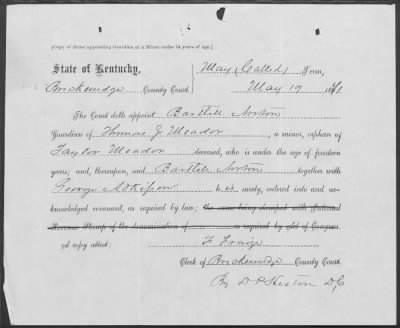 [Copy of Order appointing Guardian of a Minor under 14 years of age.]
State of Kentucky, May (Called) Term,
Breckenridge County Court. May 19 1871
The Court doth appoint Bartlett Norton
Guardian of Thomas J Meador, a minor, orphan of
Taylor Meador deceased, who is under the age of fourteen
years; and, thereupon, said Bartlett Norton together with
George h is surety, entered into and ac-
knowledged covenant, as required by law; the same being stamped with Internal
Revenue Stamp of the denomination of as required by act of Congress.
A copy attest:
Clerk of Breckenridge County Court.
By D. C.